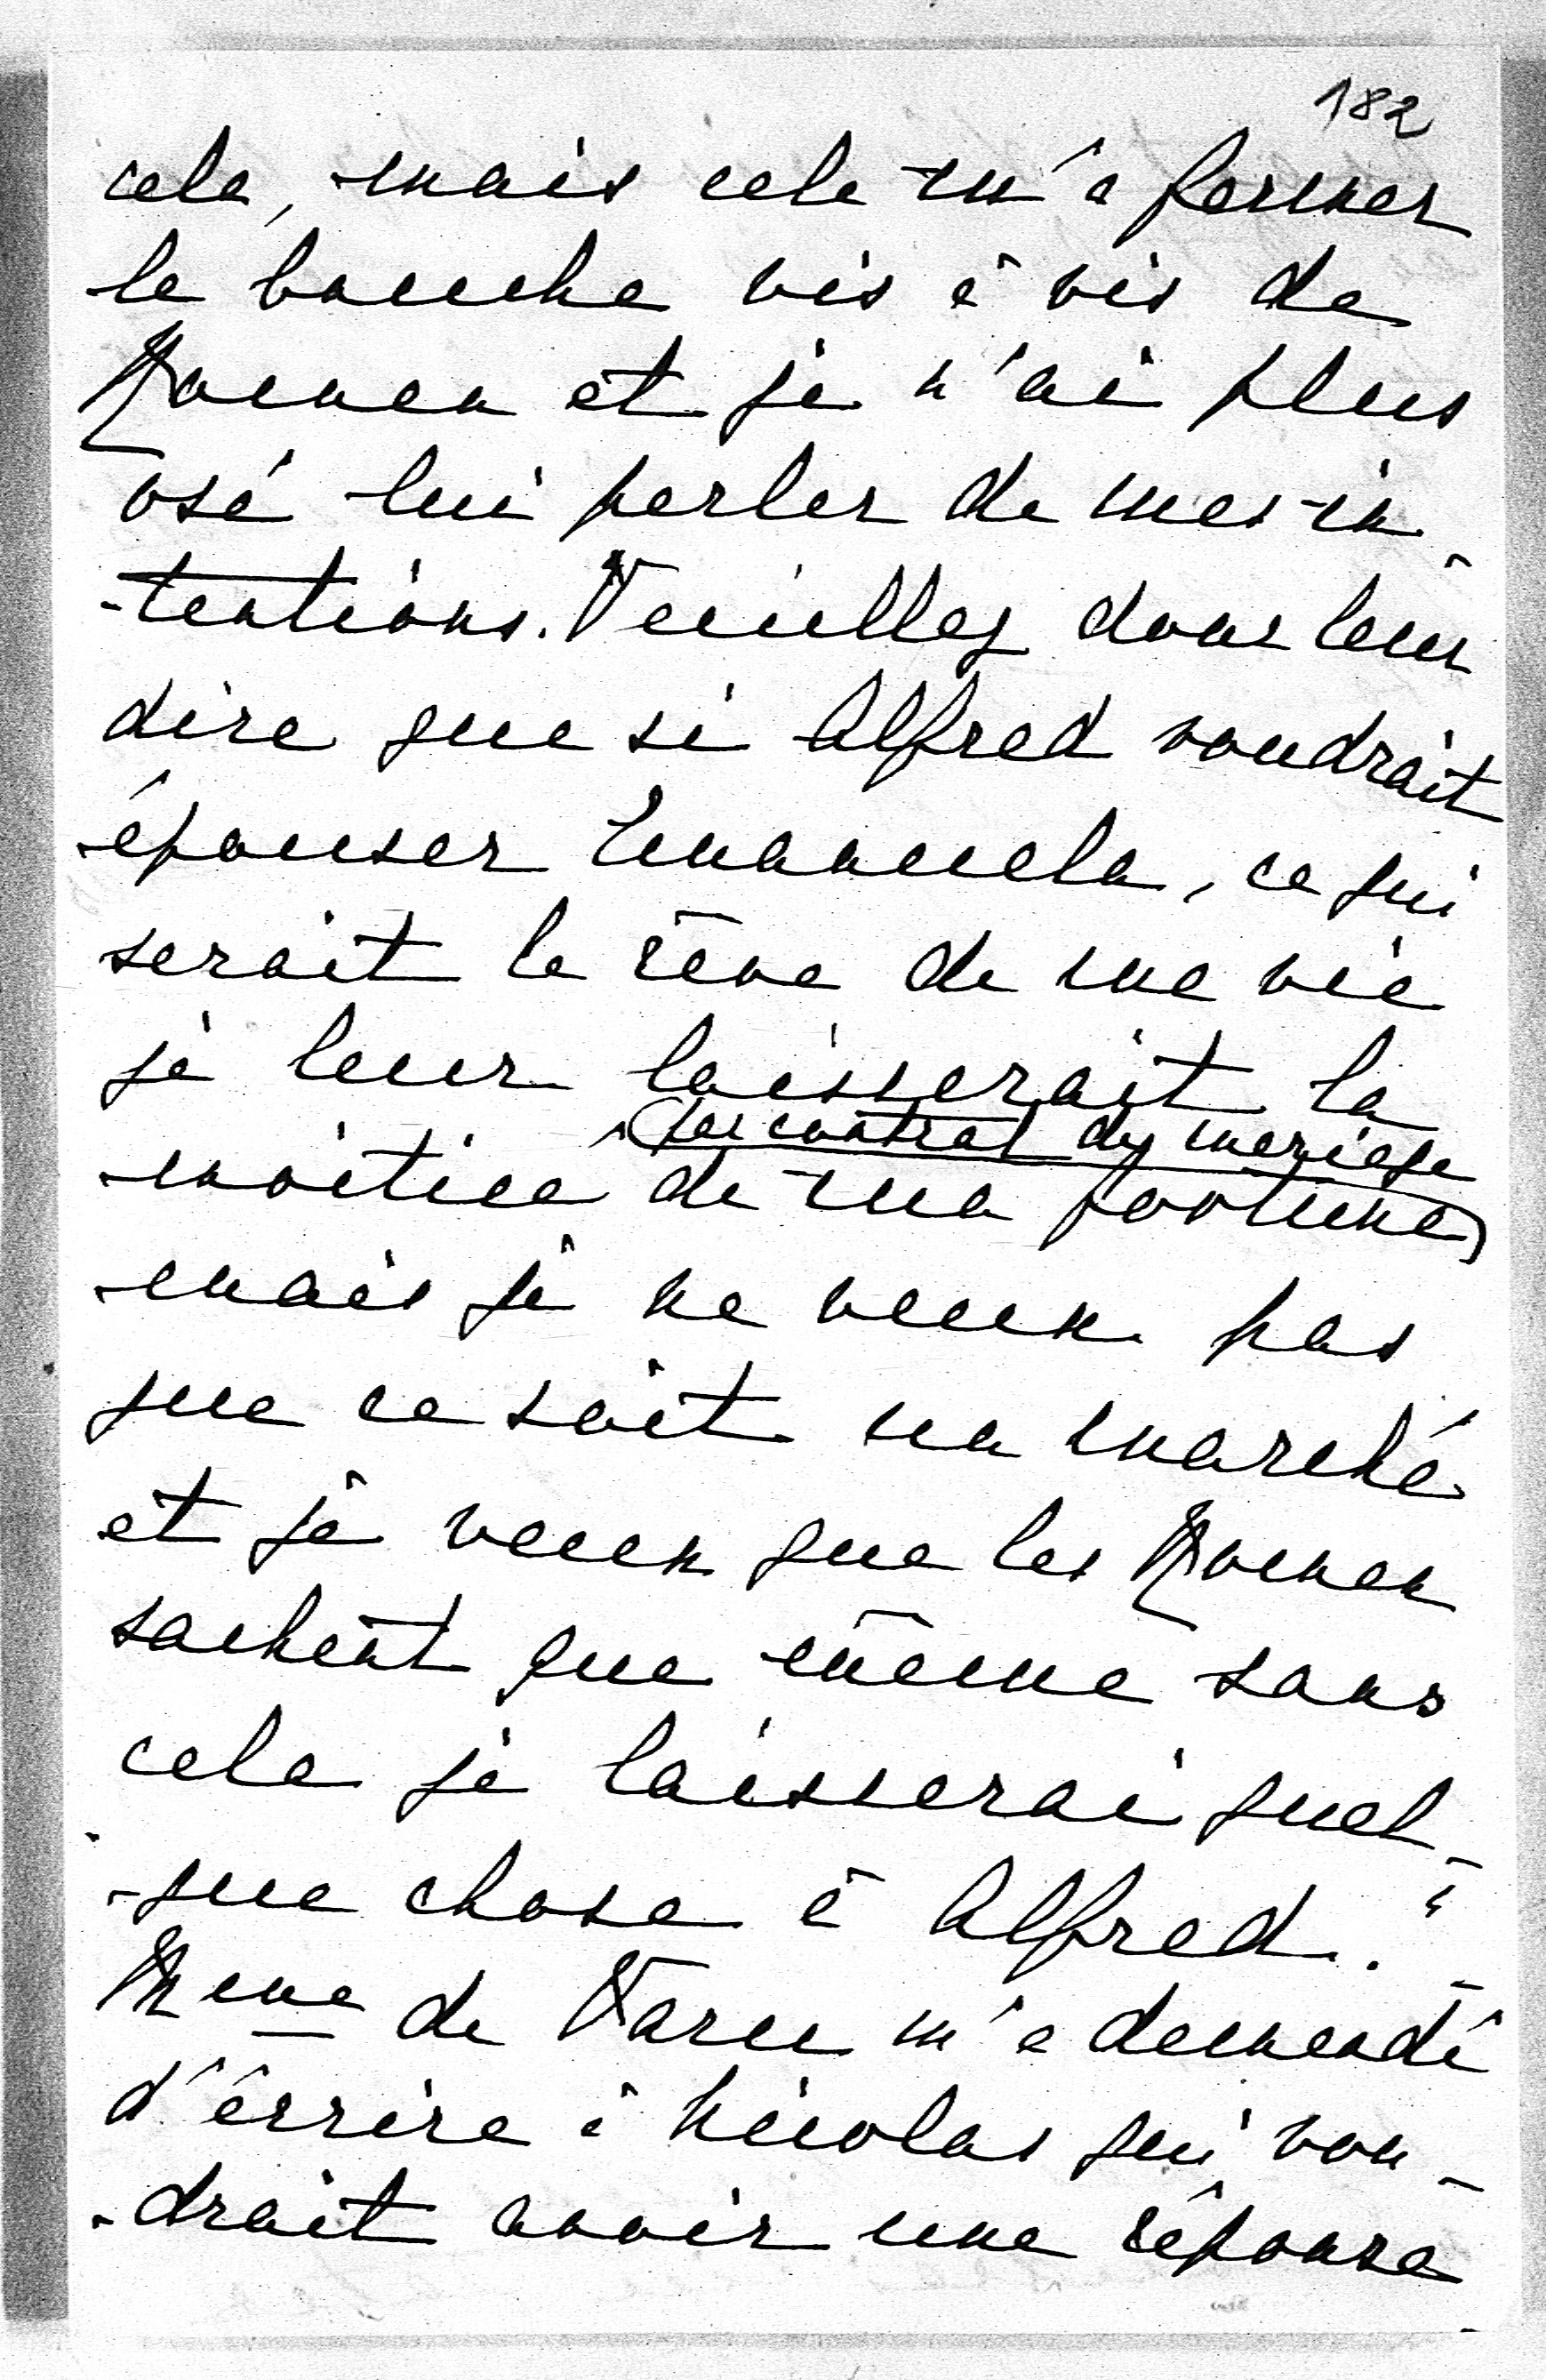 182
cela, mais cela m'a fermer
la bouche vis à vis de
et je n'ai plus
osé lui parler de mes in-
-tentions. Veuillez donc leur
dire que si Alfred voudrait
épouser Emanuela, ce qui
serait le rêve de ma vie
je leur laisserait la
(par contrat de mariage
moitiee de ma fortune)
mais je ne veux pas
que ce soit un marché
et je veux que les
sachent que même sans
cela je laisserai quel-
-que chose à Alfred."
Mme de Varu m'a demandé
d'érrire à Nicolas qui vou-
-drait avoir une réponse